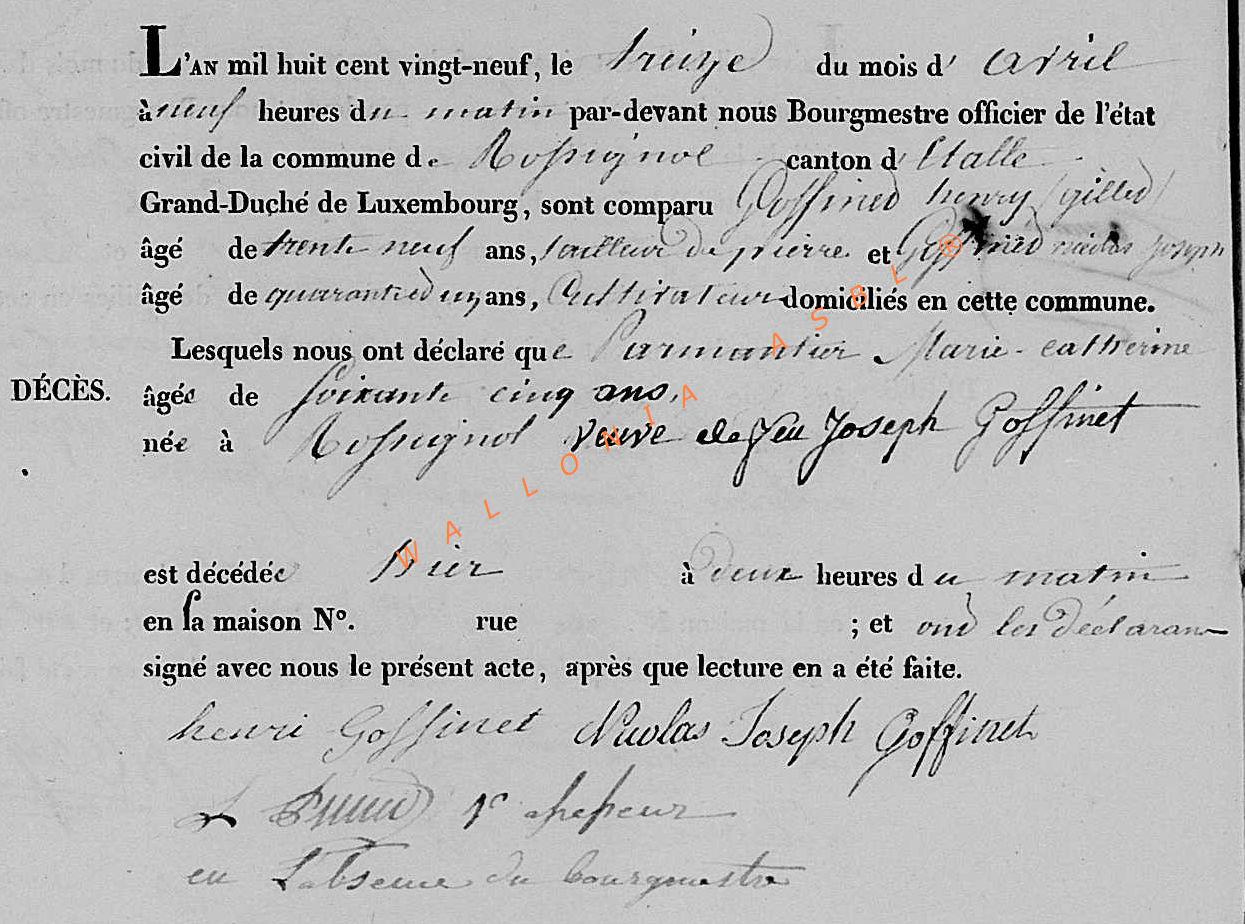 L'AN mil huit cent vingt-neuf, le treize du mois d' avril
à neuf heures du matin par-devant nous Bourgmestre officier de l'état
civil de la commune de Rossignol canton d' Etalle
Grand-Duché de Luxembourg, sont comparu Goffinet henry (gilles)
âgé de trente neuf ans, tailleur de pierre et Goffinet nicolas Joseph
âgé de quarante un ans, Cultivateur domiciliés en cette commune.
Lesquels nous ont déclaré que Parmantier Marie-catherine
DÉCÈS.
âgée de Soixante cinq ans,
née à Rossignol veuve de feu Joseph Goffinet
est décédée hier à deux heures du matin
en sa maison N°. rue ; et ont les déclarans
signé avec nous le présent acte, après que lecture en a été faite.
henri Goffinet Nicolas Joseph Goffinet
1er assesseur
en L'absence du bourgmestre
WALLONIA ASBL ®